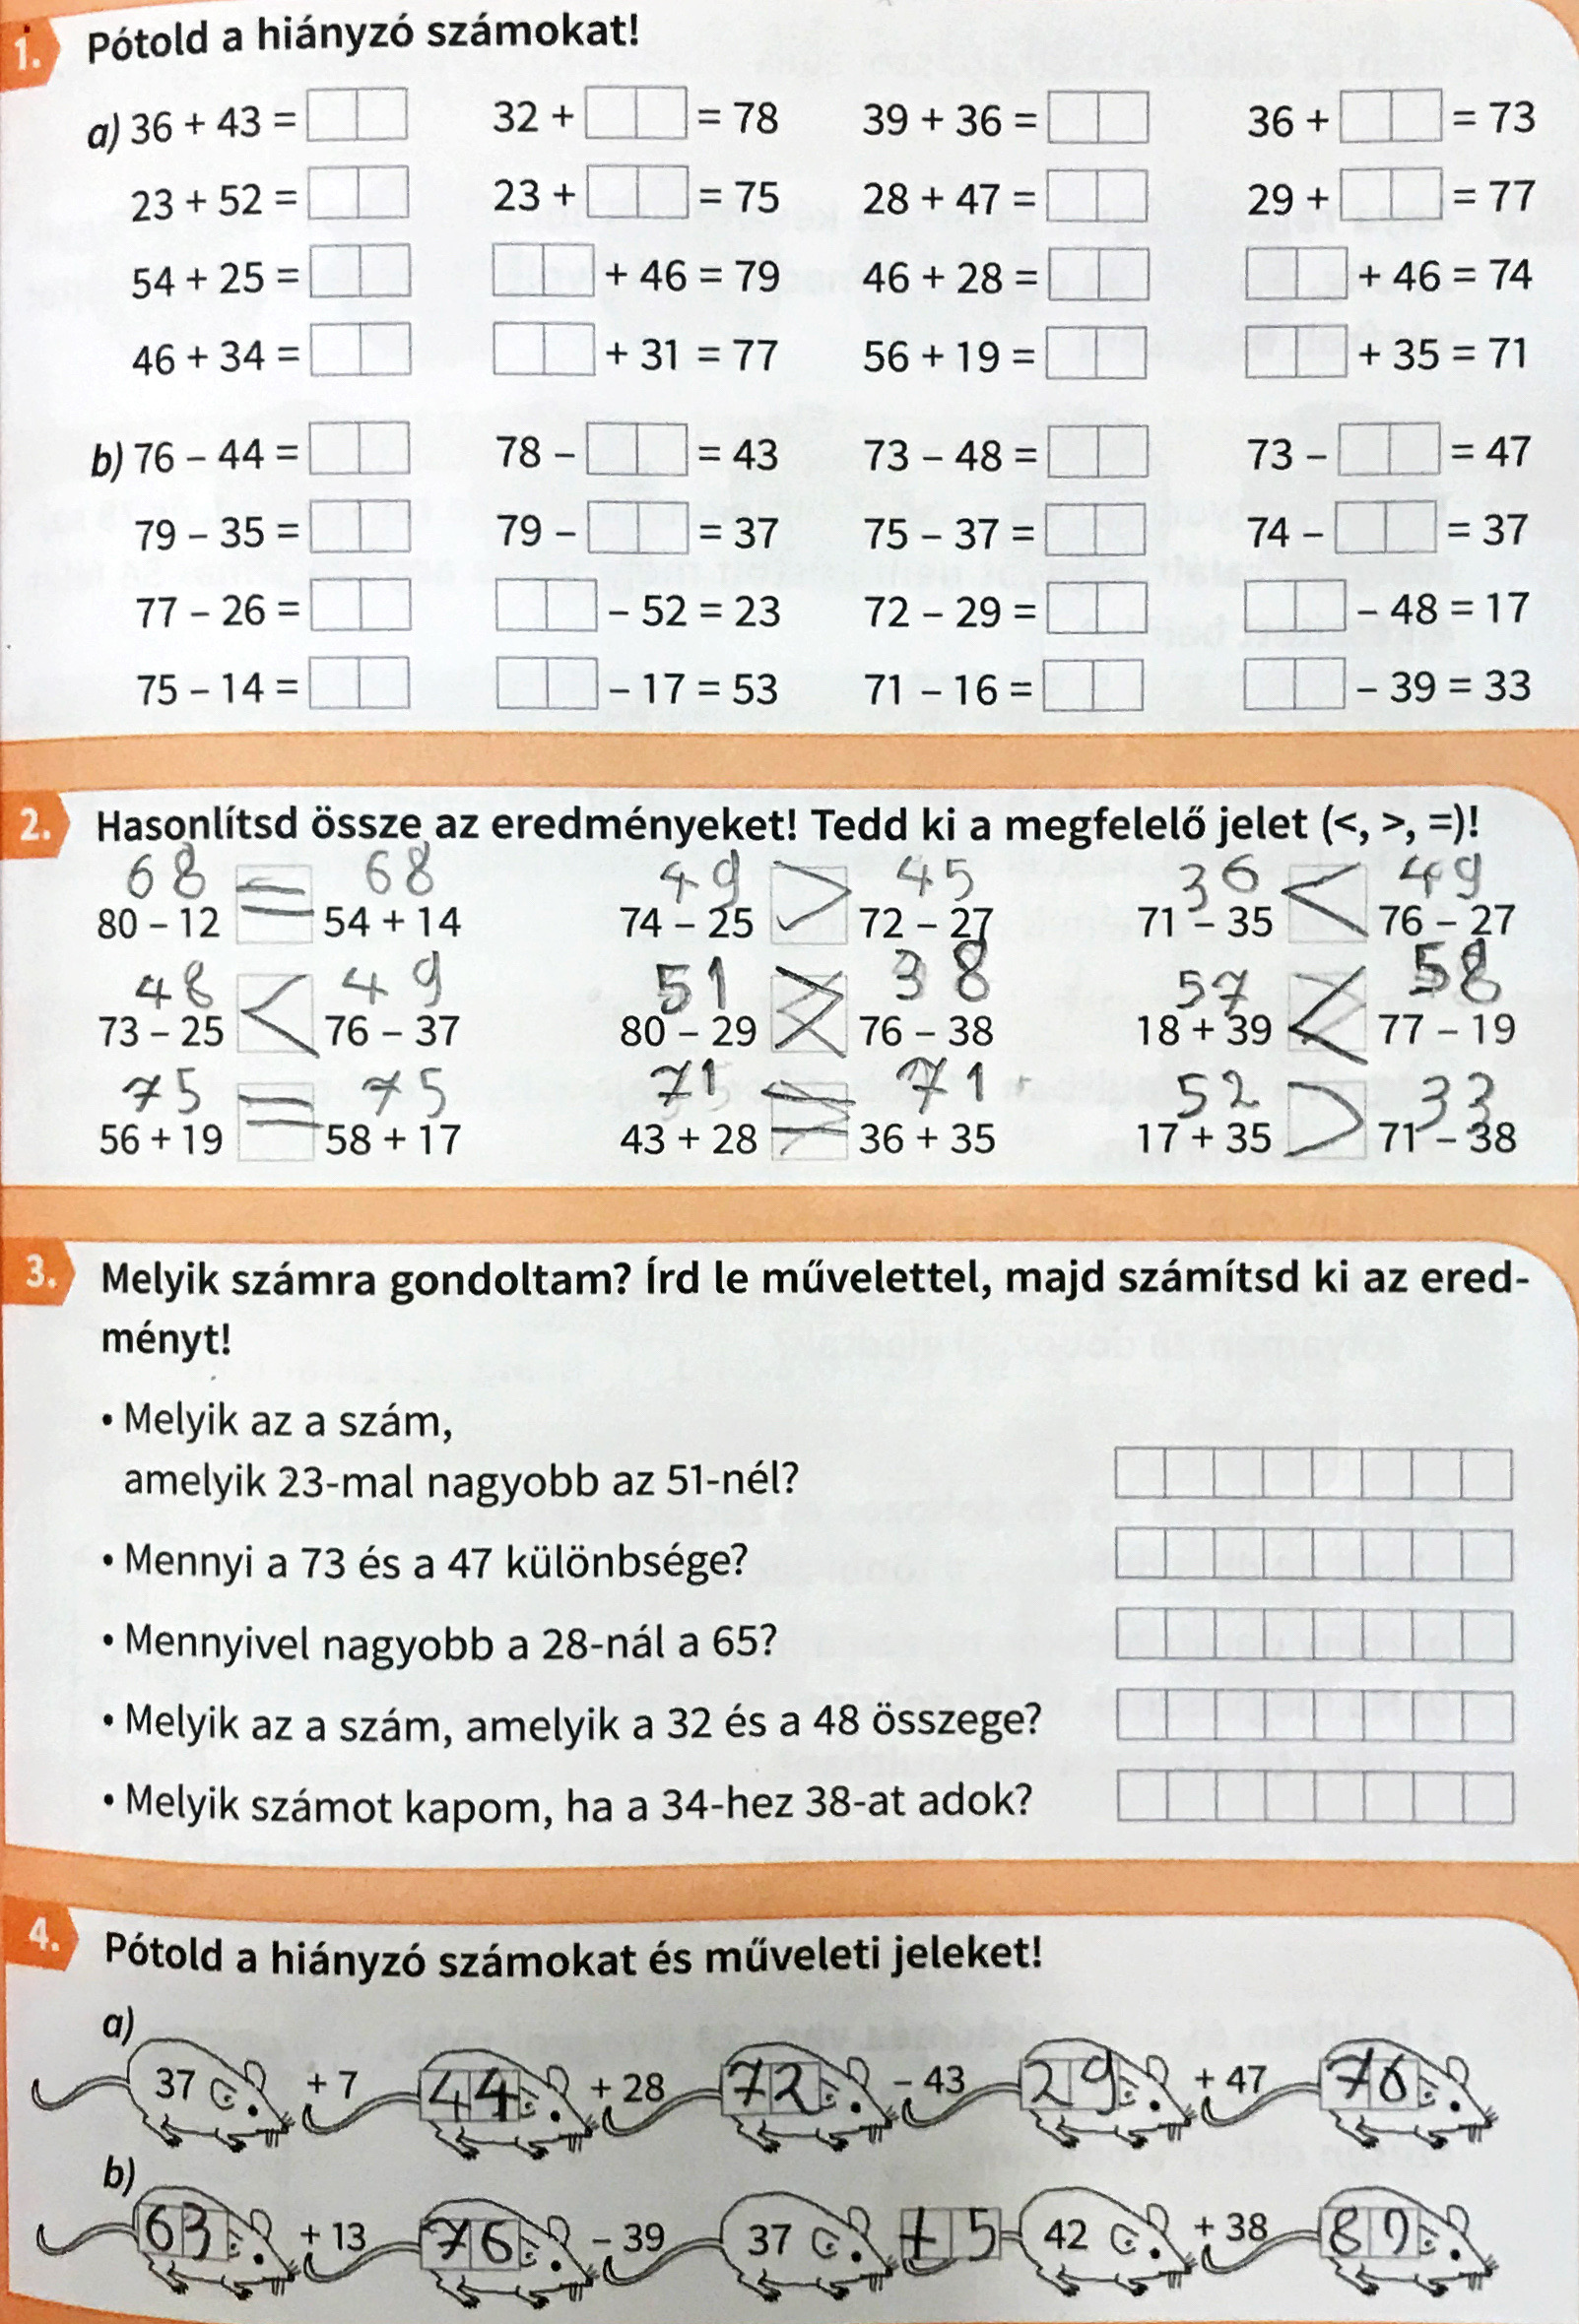 1. Pótold a hiányzó számokat!
a) 36 + 43 = 32 + = 78 39 + 36 = 36 + = 73
23 + 52 = 23 + = 75 28 + 47 = 29 + = 77
54 + 25 = + 46 = 79 46 + 28 = + 46 = 74
46 + 34 = + 31 = 77 56 + 19 = + 35 = 71
b) 76 – 44 = 78 – = 43 73 – 48 = 73 – = 47
79 – 35 = 79 – = 37 75 – 37 = 74 – = 37
77 – 26 = – 52 = 23 72 – 29 = – 48 = 17
75 – 14 = – 17 = 53 71 – 16 = – 39 = 33
2. Hasonlítsd össze az eredményeket! Tedd ki a megfelelő jelet (<, >, =)!
68 = 68 49 > 45 36 < 49
80 – 12 54 + 14 74 – 25 72 – 27 71 – 35 76 – 27
48 < 49 51 > 38 57 < 58
73 – 25 76 – 37 80 – 29 76 – 38 18 + 39 77 – 19
75 = 75 71 = 71 52 > 33
56 + 19 58 + 17 43 + 28 36 + 35 17 + 35 71 – 38
3. Melyik számra gondoltam? Írd le művelettel, majd számítsd ki az ered-
ményt!
• Melyik az a szám,
amelyik 23-mal nagyobb az 51-nél?
• Mennyi a 73 és a 47 különbsége?
• Mennyivel nagyobb a 28-nál a 65?
• Melyik az a szám, amelyik a 32 és a 48 összege?
• Melyik számot kapom, ha a 34-hez 38-at adok?
4. Pótold a hiányzó számokat és műveleti jeleket!
a)
37 + 7 44 + 28 72 – 43 29 + 47 76
b)
63 + 13 76 – 39 37 + 5 42 + 38